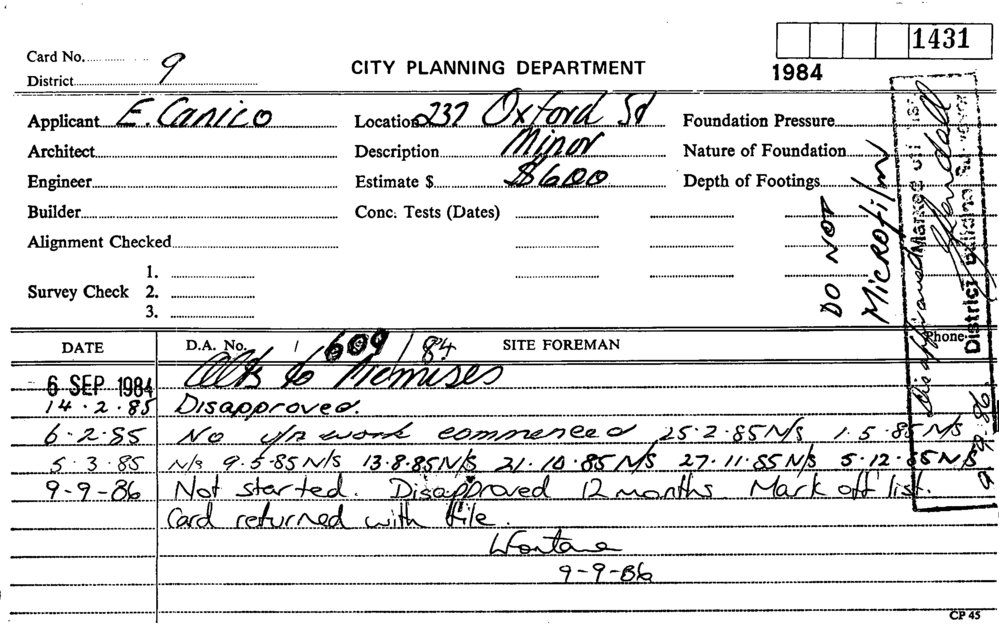 1431
Card No. 9
District
CITY PLANNING DEPARTMENT
1984
Applicant E. Canico
Location 237 Oxford St
Foundation Pressure
Architect
Description Minor
Nature of Foundation
Engineer
Estimate $ $600
Depth of Footings
Builder
Conc. Tests (Dates)
Alignment Checked
Survey Check
1.
2.
3.
DO NOT
Microfilm
Disapproved Marked off list
District Building Surveyor
9.9.86
DATE
D.A. No. 609/84
SITE FOREMAN
Phone
6 SEP 1984 Alts to Premises
14.2.85 Disapproved.
6.2.85 No work commenced 25.2.85 N/S 1.5.85 N/S
5.3.85 N/s 9.5.85 N/S 13.8.85 N/S 21.10.85 N/S 27.11.85 N/S 5.12.85 N/S
9-9-86 Not started. Disapproved 12 months. Mark off list.
Card returned with file.
9-9-86
CP 45